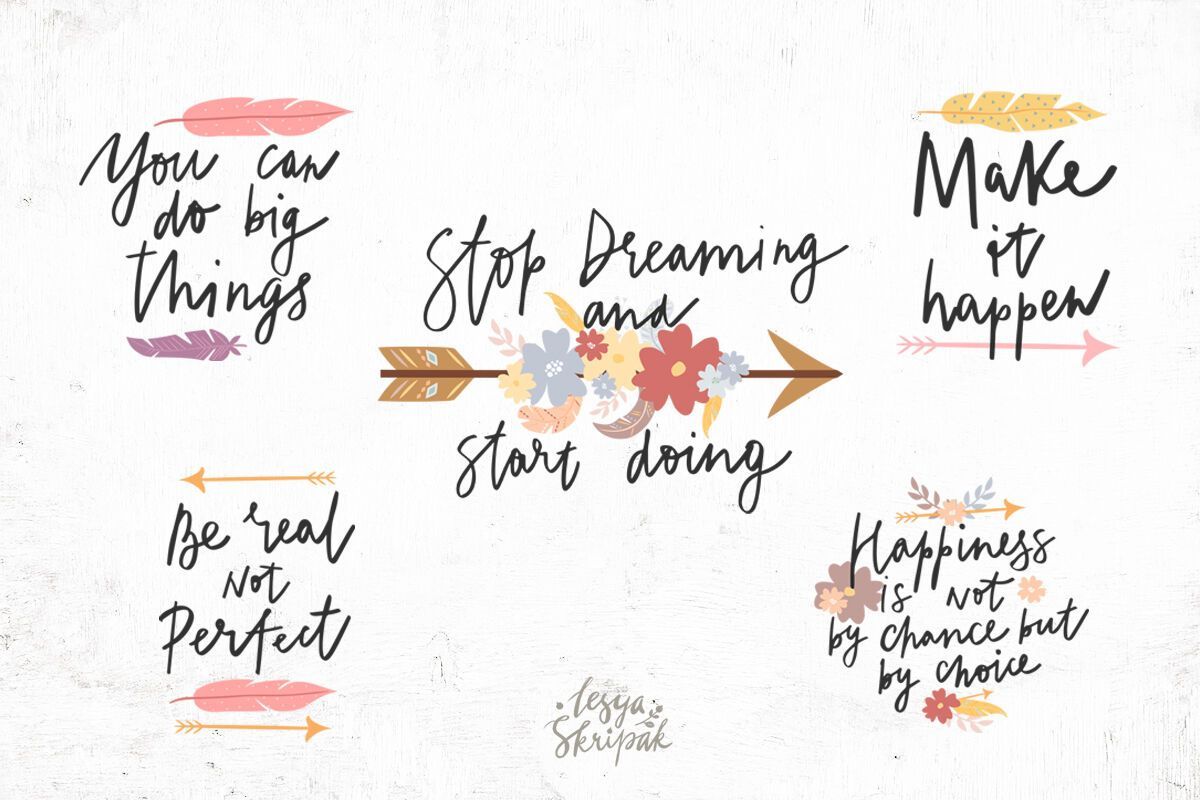 You can
do big
things
Stop Dreaming
and
start doing
Make
it
happen
Be real
Not
Perfect
Happiness
is not
by chance but
by choice
lesya
Skripak